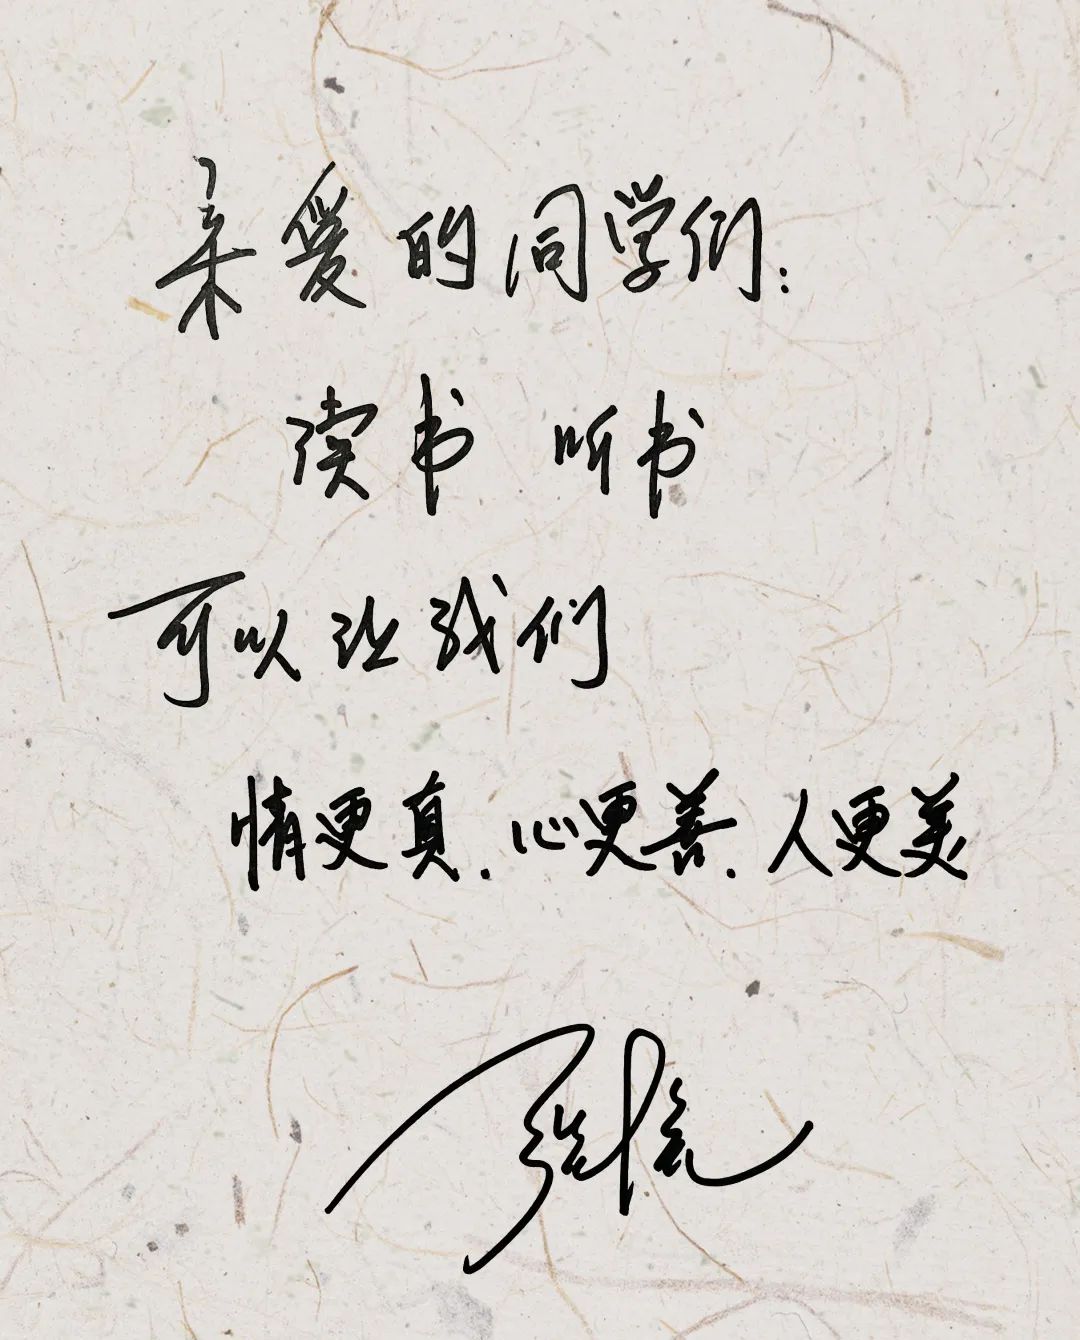 亲爱的同学们:
读书 听书
可以让我们
情更真.心更善.人更美